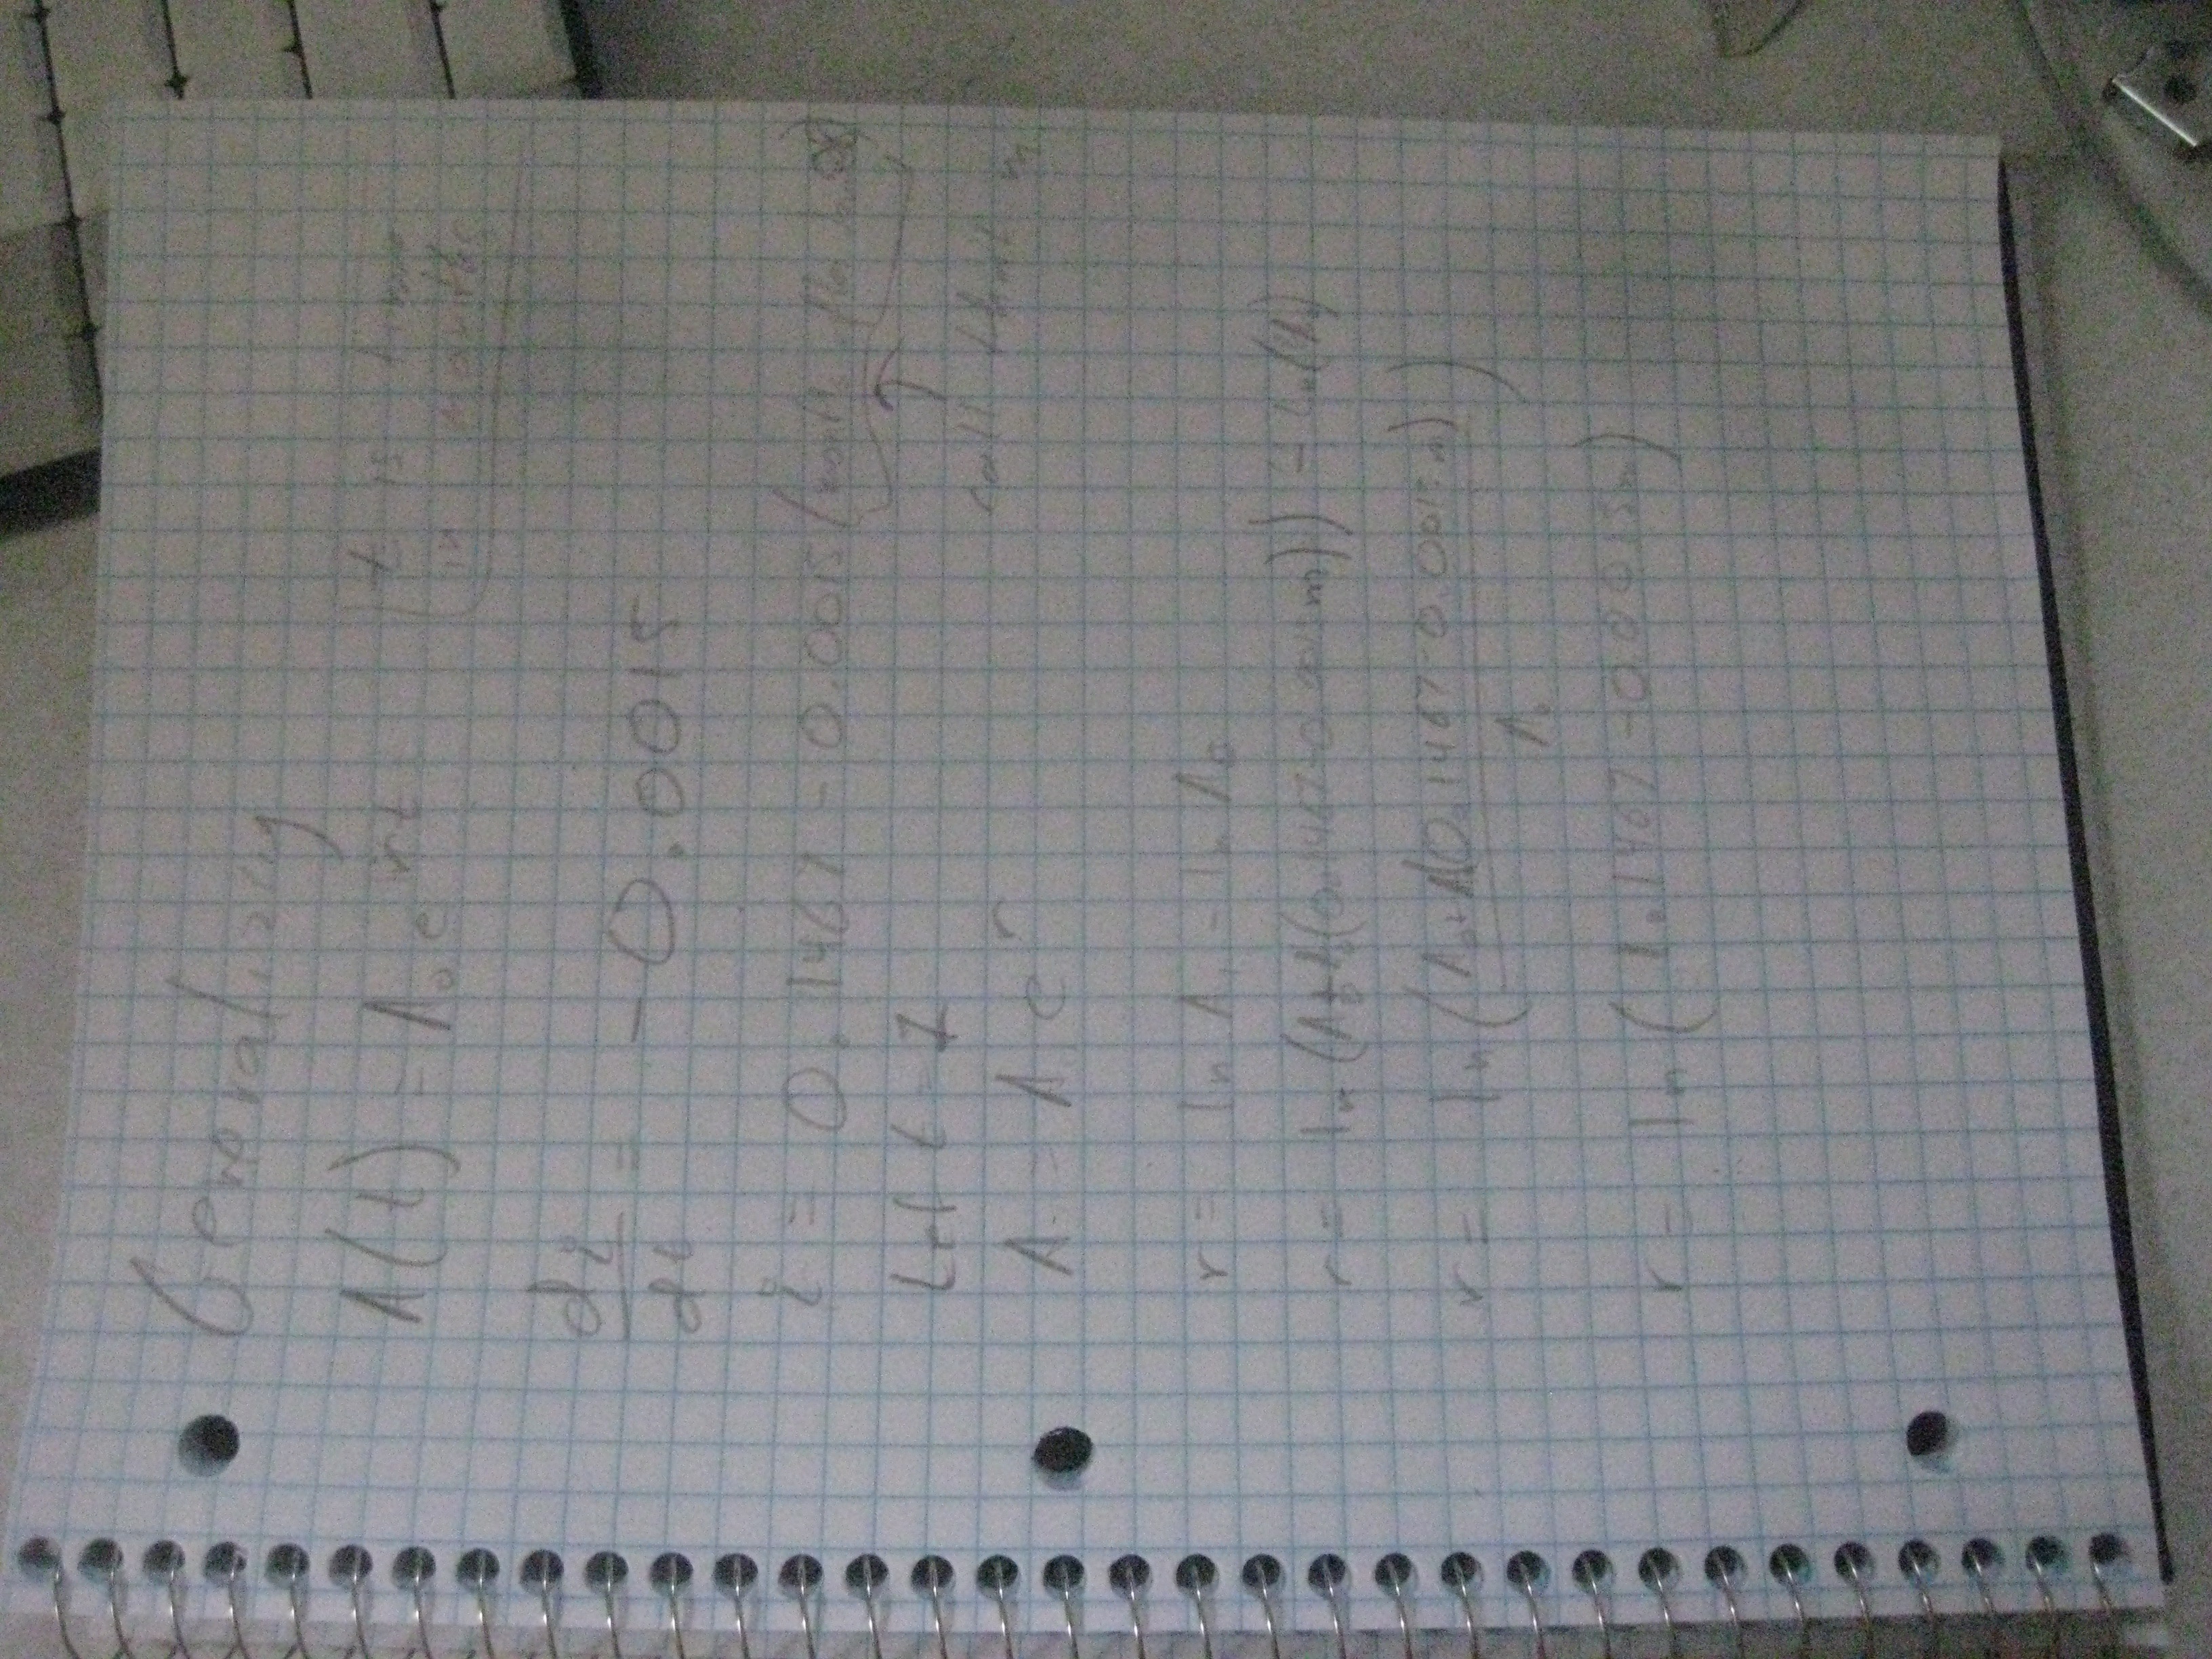 Generalizing
A(t) = A₀e^rt
t is time
in months
di/dt = -0.0015
i = 0.1467 - 0.0015(months
call that m
Let t = 1
A = A e^r
r = ln A₁ - ln A₀
r = ln(A₀+A₀(0.1467-0.0015m)) - ln(A₀)
r = ln((A₀+A₀(0.1467-0.0015m))/A₀)
r = ln(1.1467-0.0015m)